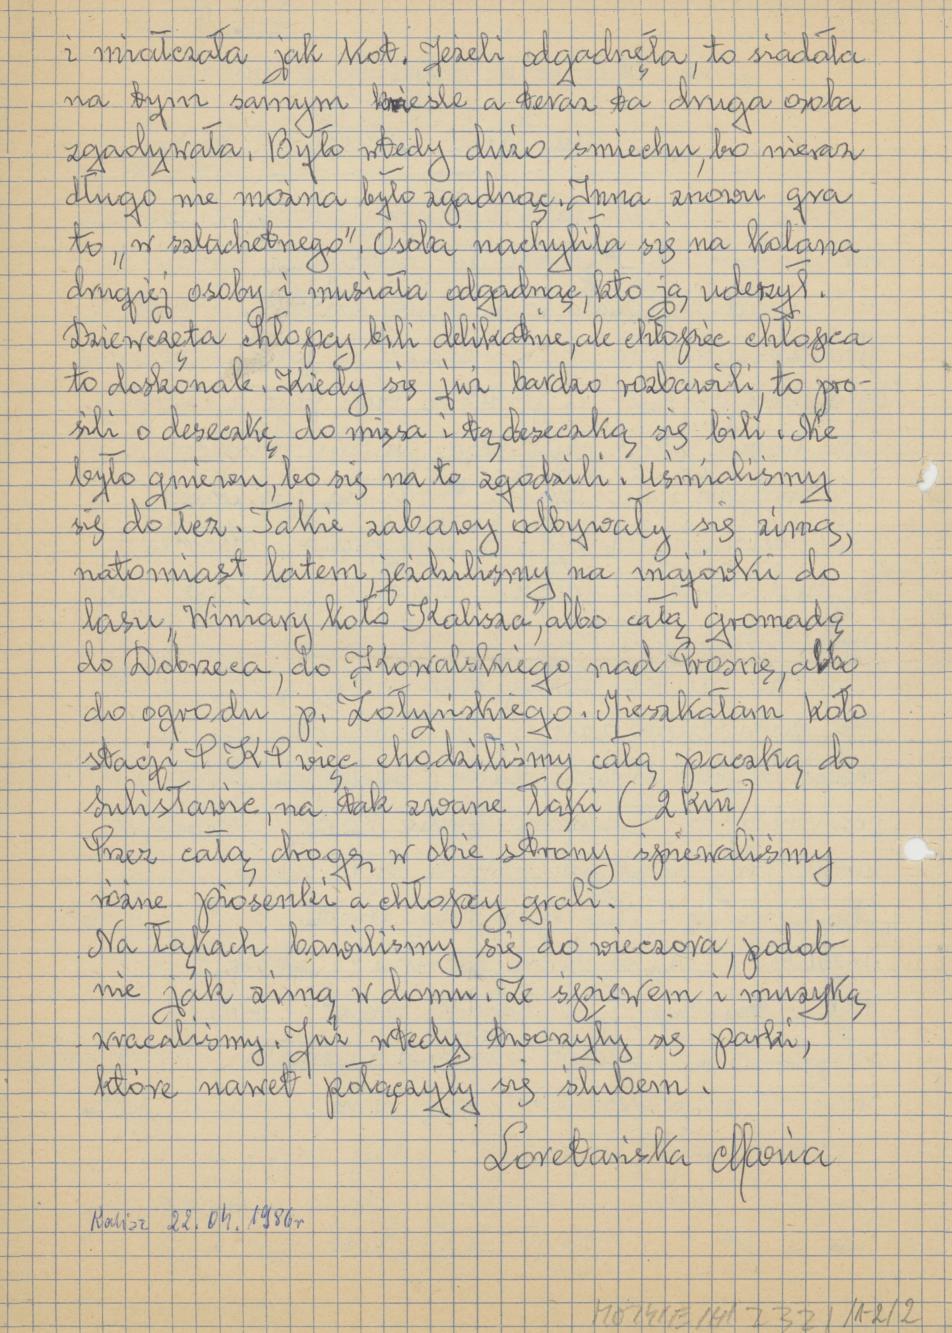 i miałczała jak kot. Jeżeli odgadnęła, to siadała
na tym samym krześle a teraz ta druga osoba
zgadywała. Było wtedy dużo śmiechu, bo nieraz
długo nie można było zgadnąć. Inna znowu gra
to „w szlachetnego”. Osoba nachyliła się na kolana
drugiej osoby i musiała odgadnąć, kto ją uderzył.
Dziewczęta chłopcy bili delikatnie, ale chłopiec chłopca
to doskonale. Kiedy się już bardzo rozbawili, to pro-
sili o deseczkę do mięsa i tą deseczką się bili. Nie
było gniewu, bo się na to zgodzili. Uśmialiśmy
się do łez. Takie zabawy odbywały się zimą,
natomiast latem, jeździliśmy na majówki do
lasu „Winiary koło Kalisza”, albo całą gromadą
do Dobrzeca, do Kowalskiego nad Prosnę, albo
do ogrodu p. Żołyńskiego. Mieszkałam koło
stacji PKP więc chodziliśmy całą paczką do
Sulisławic, na tak zwane Łąki (2 km)
Przez całą drogę w obie strony śpiewaliśmy
różne piosenki a chłopcy grali.
Na Łąkach bawiliśmy się do wieczora, podob-
nie jak zimą w domu. Ze śpiewem i muzyką
wracaliśmy. Już wtedy tworzyły się parki,
które nawet połączyły się ślubem.
Loretańska Maria
Kalisz 22.04.1986r